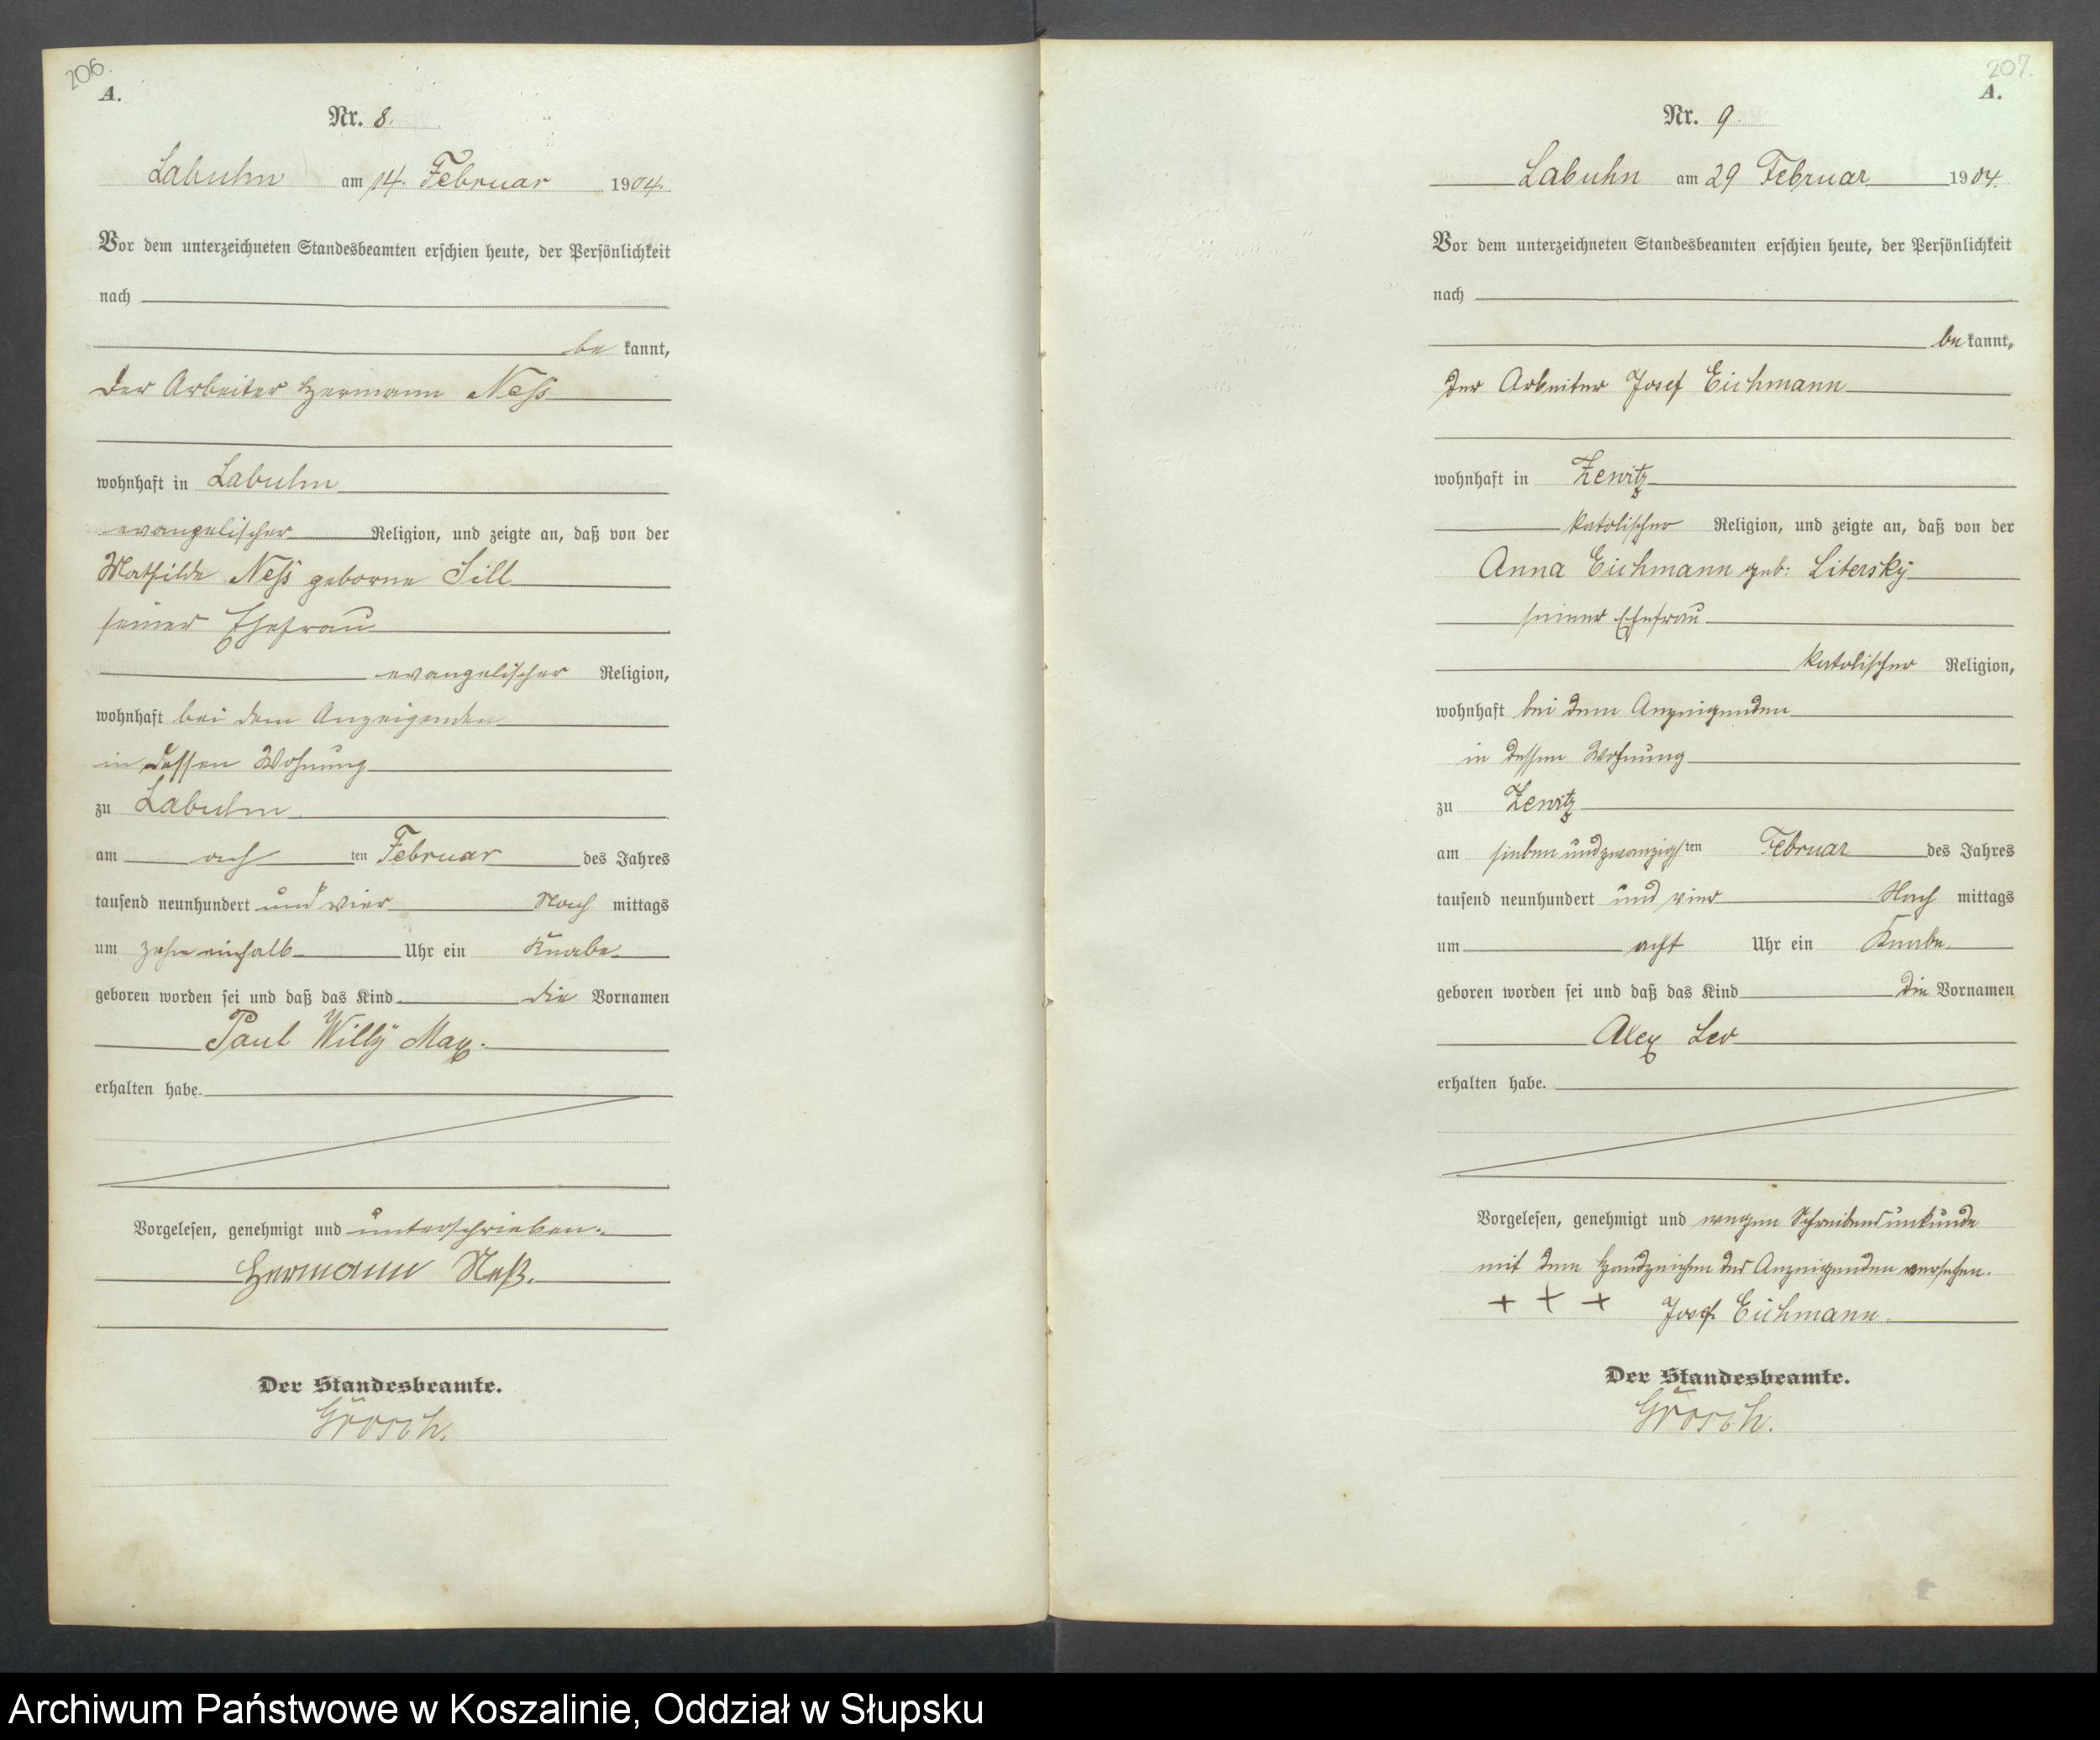 206.
A.
Nr. 8.
Labuhn am 14. Februar 1904.
Vor dem unterzeichneten Standesbeamten erschien heute, der Persönlichkeit
nach
be kannt,
der Arbeiter Hermann Neß
wohnhaft in Labuhn
evangelischer Religion, und zeigte an, daß von der
Mathilde Neß geborne Sill
seiner Ehefrau
evangelischer Religion,
wohnhaft bei dem Anzeigenden
in dessen Wohnung
zu Labuhn
am ach ten Februar des Jahres
tausend neunhundert und vier Nach mittags
um zehn einhalb Uhr ein Knabe
geboren worden sei und daß das Kind die Vornamen
Paul Willy Max.
erhalten habe.
Vorgelesen, genehmigt und unterschrieben.
Hermann Neß.
Der Standesbeamte.
Grosch.
207.
A.
Nr. 9.
Labuhn am 29 Februar 1904.
Vor dem unterzeichneten Standesbeamten erschien heute, der Persönlichkeit
nach
be kannt,
der Arbeiter Josef Eichmann
wohnhaft in Zewitz
katolischer Religion, und zeigte an, daß von der
Anna Eichmann geb: Litersky
seiner Ehefrau
katolischer Religion,
wohnhaft bei dem Anzeigenden
in dessen Wohnung
zu Zewitz
am siebenundzwanzigsten Februar des Jahres
tausend neunhundert und vier Nach mittags
um acht Uhr ein Knabe
geboren worden sei und daß das Kind die Vornamen
Alex Leo
erhalten habe.
Vorgelesen, genehmigt und wegen Schreibensunkunde
mit dem Handzeichen des Anzeigenden versehen.
+ + + Josef Eichmann.
Der Standesbeamte.
Grosch.
Archiwum Państwowe w Koszalinie, Oddział w Słupsku